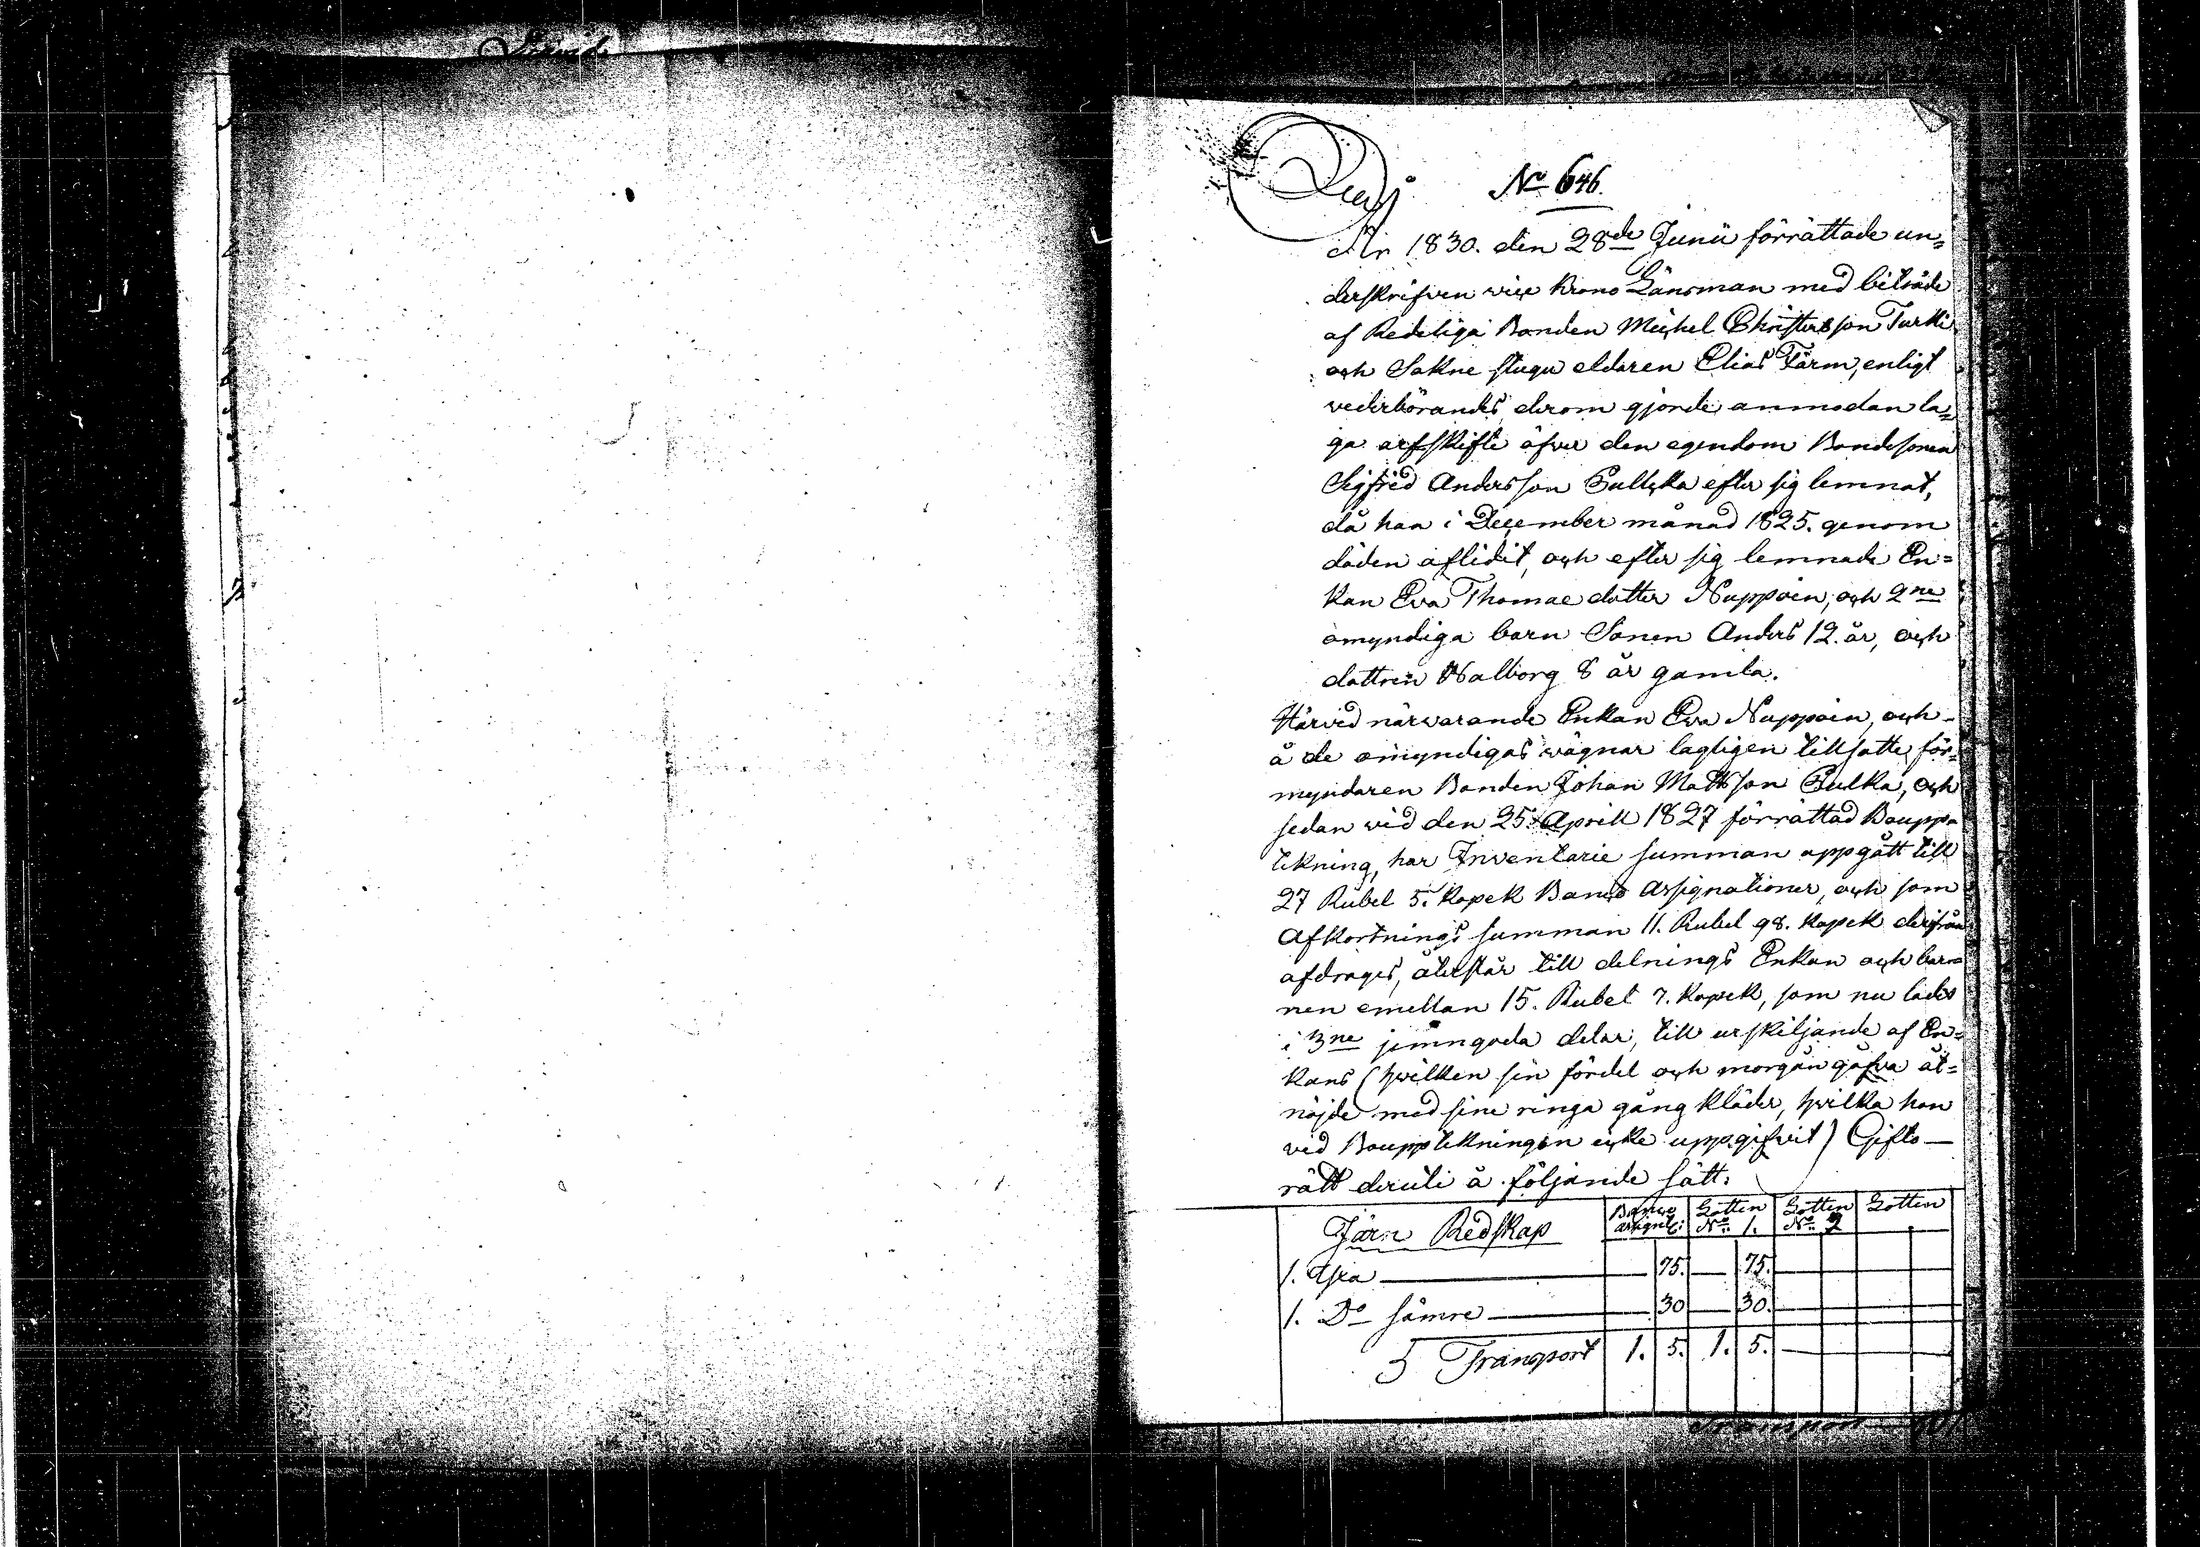 No 646.
År 1830. den 28de Junii förrättade un=
derskrifven vice Krono Länsman med biträde
af Redeliga Bonden Michel Christersson Turkki
och Sokne stugu eldaren Elias Färm, enligt
vederbörandes derom gjorde anmodan la=
ga arfskifte öfver den egendom Bondesonen
Sigfrid Andersson Pullcka efter sig lemnat,
då han i December månad 1825. genom
döden aflidit, och efter sig lemnade En=
kan Eva Thomae dotter Nuppoin, och 2ne
omyndiga barn Sonen Anders 12. år, och
dottren Walborg 8 år gamla.
Härvid närvarande Enkan Eva Nuppoin, och
å de omyndigas vägnar lagligen tillsatte för=
myndaren Bonden Johan Mattsson Pulka, och
sedan vid den 25. Aprill 1827 förrättad Bouppe
tekning, har Inventarie summan uppgått till
27 Rubel 5. Kopek Banco Assignationer, och som
Afkortnings summan 11. Rubel 98. Kopek derifrån
afdrages, återstår till delnings Enkan och bar=
nen emellan 15. Rubel 7. Kopek, som nu lades
i 3ne jemngoda delar, till urskiljande af En=
kans (hvilken sin fördel och morgongåfva åt=
nöjde med sine ringa gång kläder, hvilka hon
vid Boupptekningen icke uppgifvit) Gifto
rätt deruti å följande sätt.
Järn Redskap Banco Assignat: Lotten No 1. Lotten No 2 Lotten
1. Yxa 75. 75.
1. Do sämre 30 30.
Transport 1. 5. 1. 5.